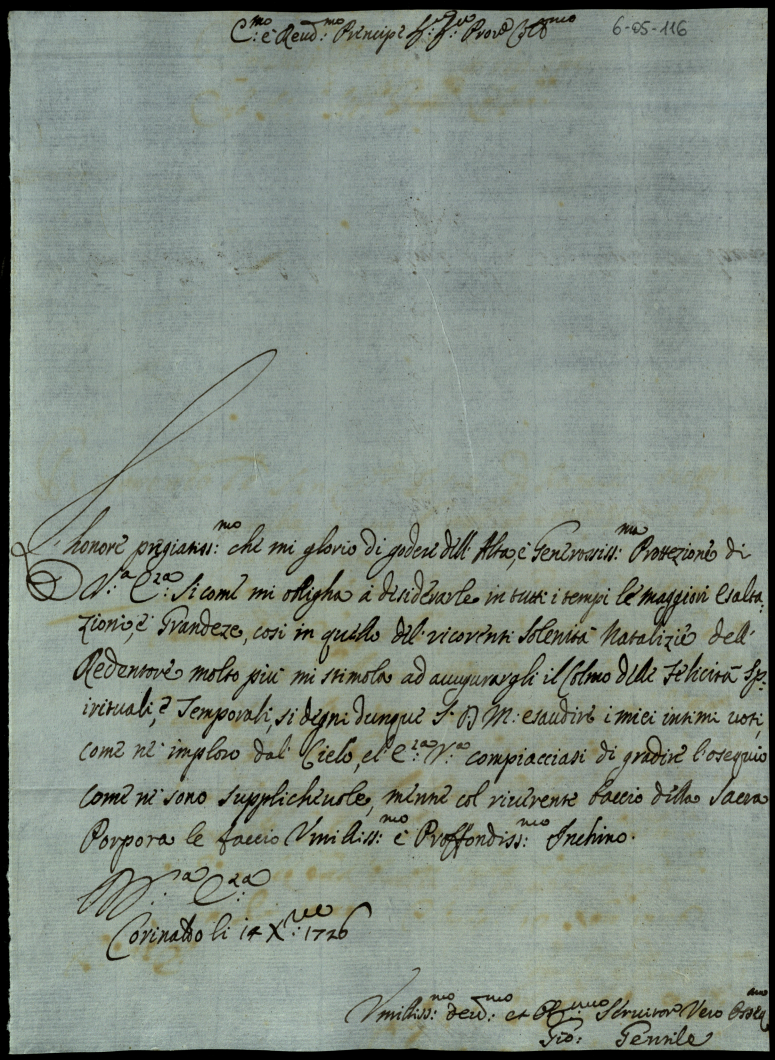 E:mo e Reud:mo Principe Sig:r Sig:r Prone Col:mo
6-05-116
L'honore pregiatiss:mo che mi glorio di godere dell'Alta, e Generosiss:ma Protezione di
V:a E:za si come mi obligha a desiderarle in tutti i tempi le maggiori esalta-
zioni, e Grandeze, cosi in quello del ricorrenti Solenità Natalizie dell'
Redentore molto più mi stimola ad augurargli il Colmo delle Felicità Sp-
irituali, e Temporali, si degni dunque S. D. M: esaudire i miei intimi uoti,
come ne imploro dal Cielo, el' E:za V:a compiacciasi di gradire l'osequio
come ne sono supplicheuole, mentre col riuerente baccio della Sacra
Porpora le faccio Vmiliss:mo e Proffondiss:mo Inchino.
D V:a E:za
Corinaldo li 14 X:bre 1726
Vmiliss:mo deud:mo et Ob:mo Seruitor Vero Osseq:mo
Gio: Gentile